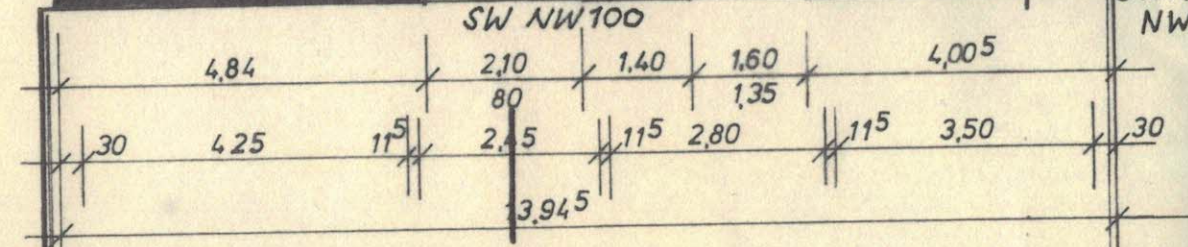 SW NW 100
NW
4,84 2,10 1,40 1,60 4,00⁵
80 1,35
30 4 25 11⁵ 2,45 11⁵ 2,80 11⁵ 3,50 30
13,94⁵